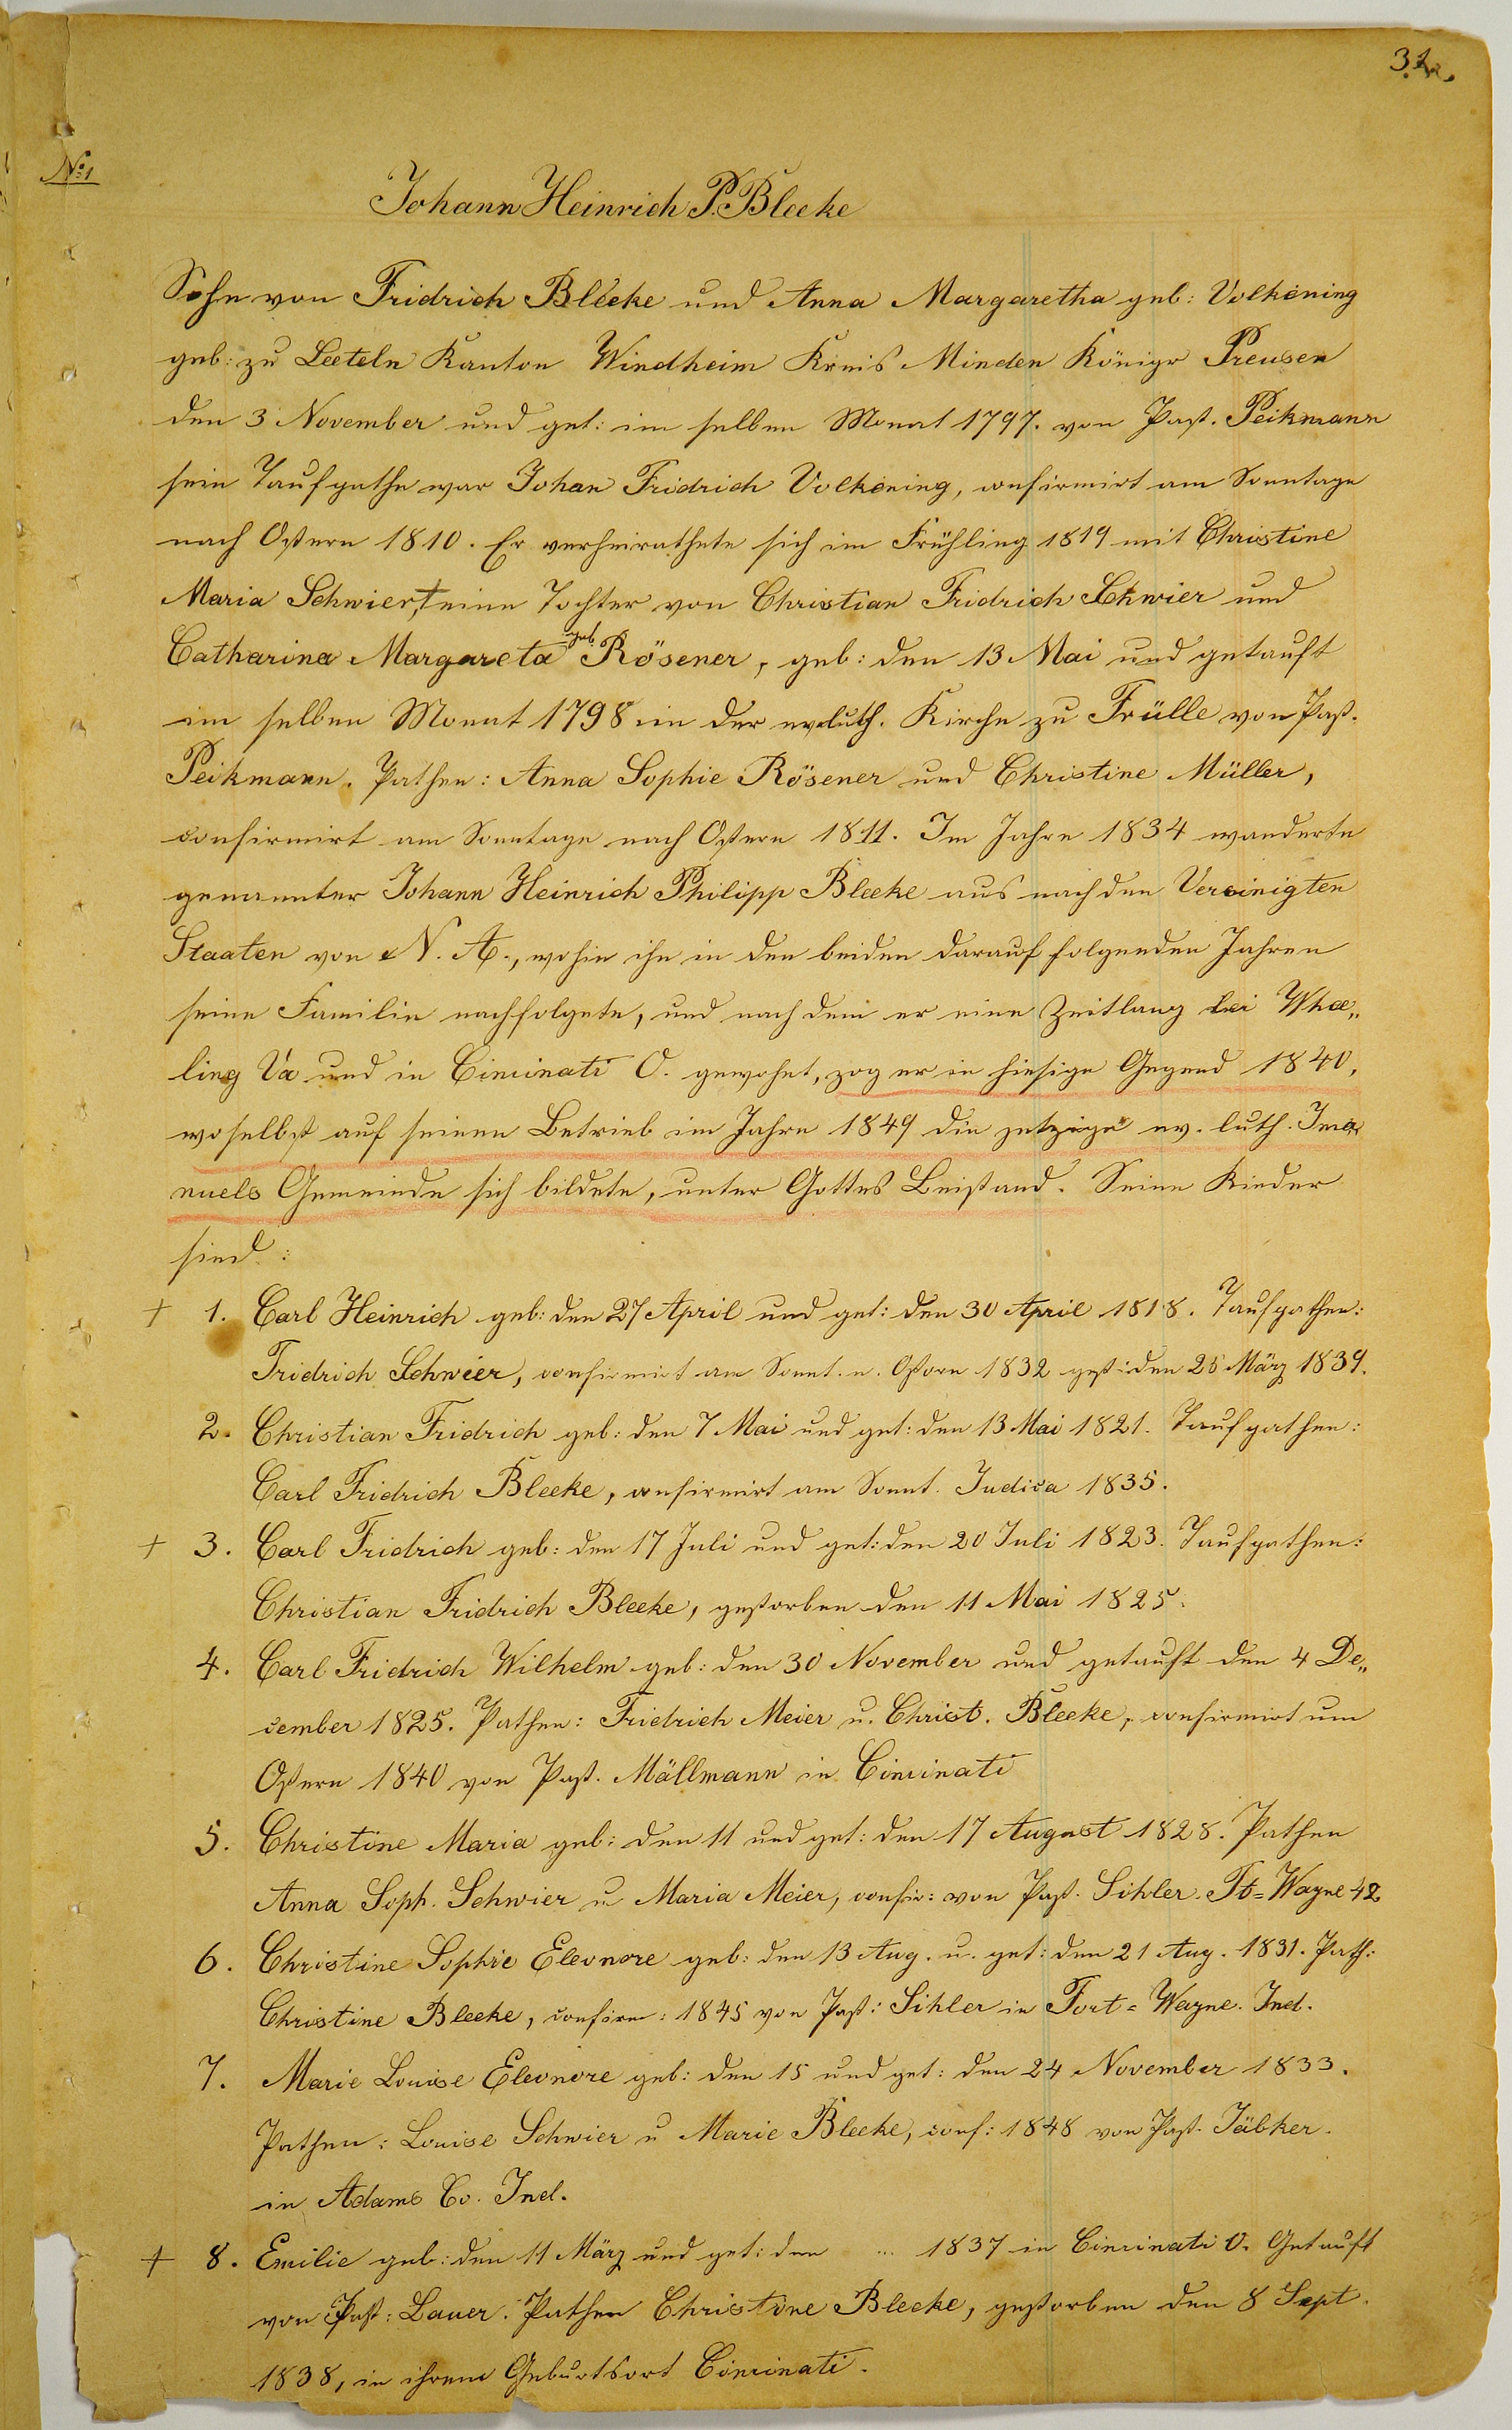 32.
No 1
Johann Heinrich P. Bleeke
Sohn von Fridrich Bleeke und Anna Margaretha geb: Volkening
geb: zu Leeteln Kanton Windheim Kreis Minden Königr Preusen
den 3 November und get: im selben Monat 1797. von Past. Peikmann
sein Taufpathe war Johan Fridrich Volkening, confirmirt am Sonntage
nach Ostern 1810. Er verheirathete sich im Frühling 1819 mit Christine
Maria Schwier, † eine Tochter von Christian Fridrich Schwier und
Catharina Margareta geb. Rösener, geb: den 13 Mai und getauft
im selben Monat 1798 in der ev. luth. Kirche zu Frülle von Past.
Peikmann. Pathen: Anna Sophie Rösener und Christine Müller,
confirmirt am Sonntage nach Ostern 1811. Im Jahre 1834 wanderte
genannter Johann Heinrich Philipp Bleeke aus nach den Vereinigten
Staaten von N. A., wohin ihn in den beiden darauf folgenden Jahren
seine Familie nachfolgete, und nach dem er eine Zeitlang bei Whee„
ling Va und in Cincinati O. gewohnt, zog er in hiesige Gegend 1840,
woselbst auf seinen Betrieb im Jahre 1849 die jetzige ev. luth. Ima„
nuels Gemeinde sich bildete, unter Gottes Beistand. Seine Kinder
sind:
† 1. Carl Heinrich geb: den 27 April und get: den 30 April 1818. Taufpathen:
Fridrich Schwier, confirmirt am Sonnt. n. Ostern 1832 gest: den 25 März 1839.
2. Christian Fridrich geb: den 7 Mai und get: den 13 Mai 1821. Taufpathen:
Carl Fridrich Bleeke, confirmirt am Sonnt. Judica 1835.
† 3. Carl Fridrich geb: den 17 Juli und get: den 20 Juli 1823. Taufpathen:
Christian Fridrich Bleeke, gestorben den 11 Mai 1825.
4. Carl Fridrich Wilhelm geb: den 30 November und getauft den 4 De„
cember 1825. Pathen: Fridrich Meier u. Christ. Bleeke, confirmirt um
Ostern 1840 von Past. Mällmann in Cincinati
5. Christine Maria geb: den 11 und get: den 17 August 1828. Pathen
Anna Soph. Schwier u Maria Meier, confir: von Past. Sihler. Ft=Wayne 42
6. Christine Sophie Eleonore geb: den 13 Aug. u. get: den 21 Aug. 1831. Path:
Christine Bleeke, confirm: 1845 von Past: Sihler in Fort=Wayne. Ind.
7. Marie Louise Eleonore geb: den 15 und get: den 24 November 1833.
Pathen: Louise Schwier u Marie Bleeke, conf: 1848 von Past. Jäbker.
in Adams Co. Ind.
† 8. Emilie geb: den 11 März und get: den ... 1837 in Cincinati O. Getauft
von Past: Lauer. Pathen Christine Bleeke, gestorben den 8 Sept.
1838, in ihrem Geburtsort Cincinati.